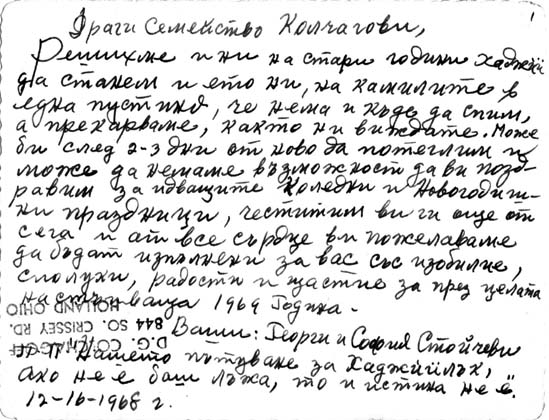 1
Драги Семейство Колчагови,
Решихме и ни на стари години хаджїї
да станем и ето ни, на камилите в
една пустиня, че нема и къде да спим,
а прекарваме, както ни виждате. Може
би след 2-3 дни от ново да потеглим и
може да немаме възможност да ви позд-
равим за идващите Коледни и Новогодиш-
ни праздници, честитим ви ги още от
сега и от все сърдце ви пожелаваме
да бъдат изпълнени за вас със изобилие,
сполуки, радости и щастие за през целата
настъпваща 1969 Година.
HOLLAND OHIO
844 SO. CRISSEY RD.
D.G.
Ваши: Георги и София Стойчеви
П.П. Нашето пътуване за Хаджийлък,
ако не е баш лъжа, то и истина не е.
12-16-1968 г.